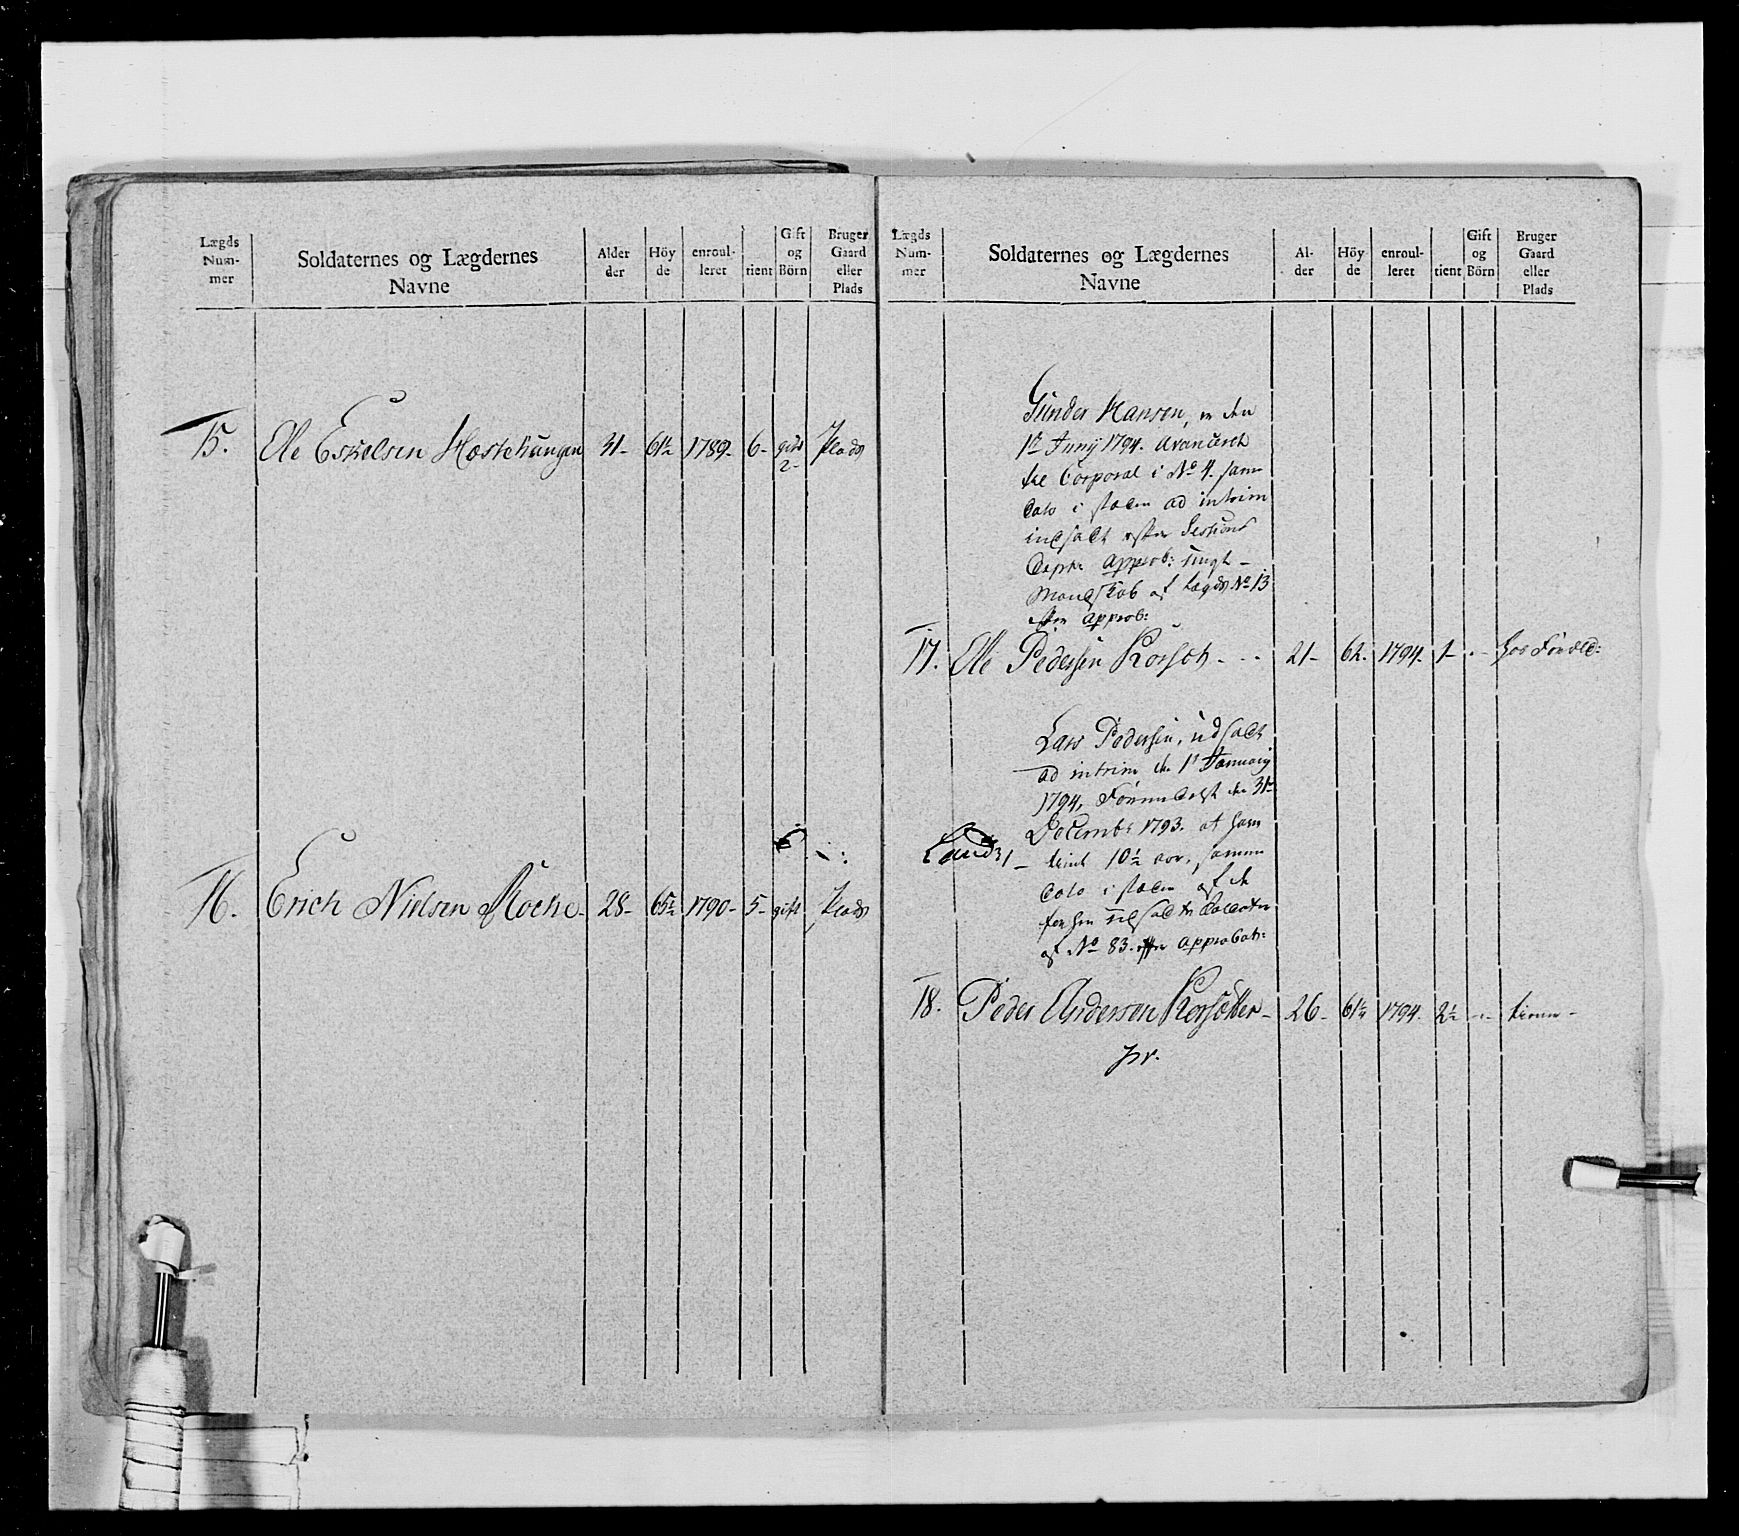 Lægds Num- mer
Soldaternes og Lægdernes Navne
Alder der
Höy de
enroul- leret
tient
Gift og Börn
Bruger Gaard eller Plads
15. Ole Eskelsen 31- 61½ 1789- 6- gift 2- Plads
16. Erich Nielsen Moche- 28- 65½ 1790- 5- gift Plads
Lægds Num- mer
Soldaternes og Lægdernes Navne
Al- der
Höy de
enroul- leret
tient
Gift og Börn
Bruger Gaard eller Plads
Gunder Hansen, er den
1te Junij 1794. avanceret
til Corporal i No 4. samme
Dato i stæden ad intrim
indsadt efter Sessions
Dept: approb: ungt-
Mandskab af Lægds No 13
efter approb:
17. Ole Pedersen Korsøt - - - 21- 62. 1794. 1- - - hos Foræld:
Lars Pedersen, udsadt
ad intrim den 1t Januarij
1794, den 31te
Decembr 1793. at have
tient 10½ aar, samme
Dato i stæden af de
af No 83. efter approbat:
18. Peder Andersen - 26- 61½ 1794. 2½ - - tiener -